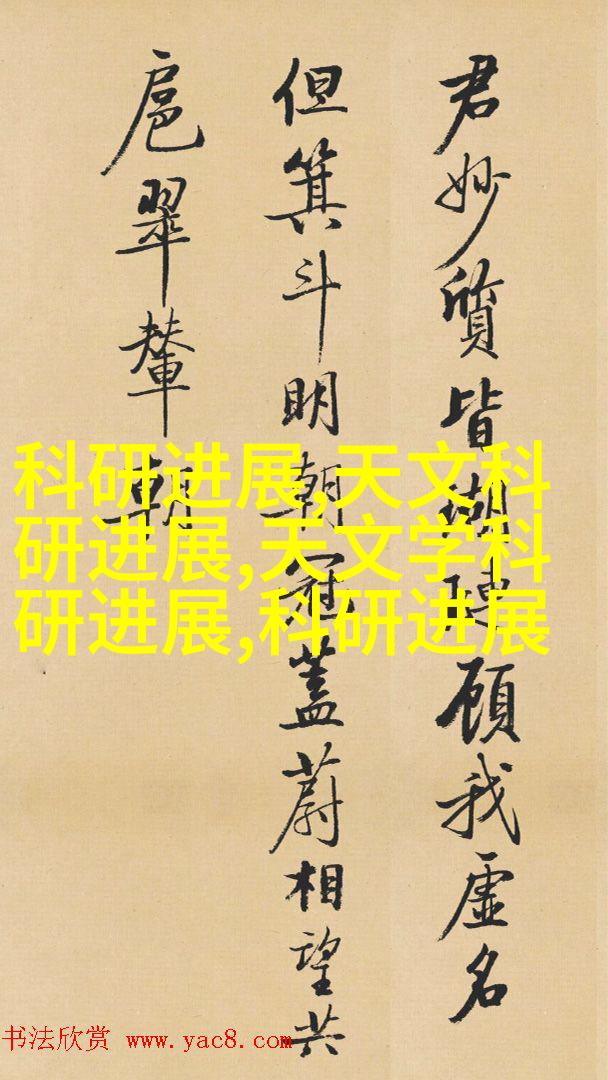 君妙質皆瑚璉顧我虛名
但箕斗明朝冠蓋蔚相望共
扈翠輦朝
科研进展,天文科
研进展,天文学科
研进展,科研进展
书法欣赏 www.yac8.com